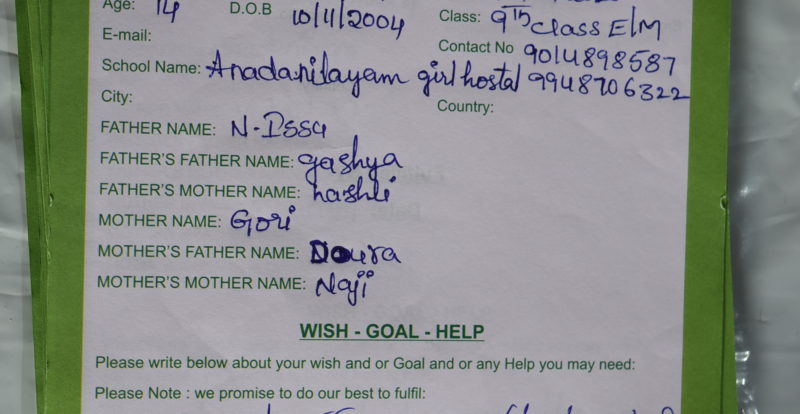 Age: 14 D.O.B 10/11/2004 Class: 9th class E/M
E-mail: Contact No 9014898587
School Name: Anadanilayam girl hostal 9948706322
City: Country:
FATHER NAME: N. Issa
FATHER'S FATHER NAME: gashya
FATHER'S MOTHER NAME: hashli
MOTHER NAME: Gori
MOTHER'S FATHER NAME: Doura
MOTHER'S MOTHER NAME: Naji
WISH - GOAL - HELP
Please write below about your wish and or Goal and or any Help you may need:
Please Note : we promise to do our best to fulfil: